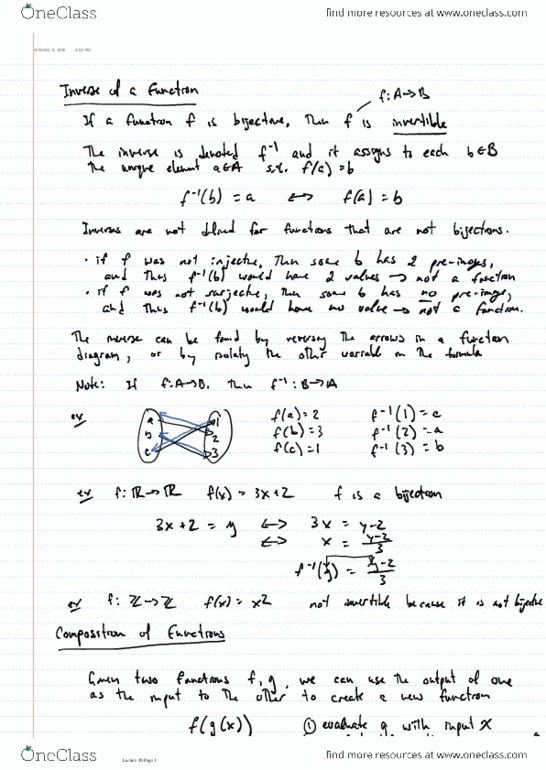 OneClass
find more resources at www.oneclass.com
4:02 PM
Inverse of a Function
f: A → B
If a function f is bijective, Then f is invertible
The inverse is denoted f⁻¹ and it assigns to each b∈B
The unique element a∈A s.t. f(a) = b
f⁻¹(b) = a ↔ f(a) = b
Inverses are not defined for functions that are not bijections.
• if f was not injective, Then some b has 2 pre-images,
and Thus f⁻¹(b) would have 2 values → not a function
• if f was not surjective, Then some b has no pre-image,
and Thus f⁻¹(b) would have no value → not a function.
The inverse can be found by reversing The arrows in a function
diagram, or by isolating the other variable in the formula
Note: If f: A→B, Then f⁻¹: B→A
ex
a
b
c
1
2
3
f(a) = 2 f⁻¹(1) = c
f(b) = 3 f⁻¹(2) = a
f(c) = 1 f⁻¹(3) = b
ex f: ℝ → ℝ f(x) = 3x + 2 f is a bijection
3x + 2 = y ↔ 3x = y - 2
↔ x = y-2/3
ex f: ℤ → ℤ f(x) = x2 not invertible because it is not bijective
Composition of Functions
Given two functions f, g, we can use the output of one
as the input to the other to create a new function
f(g(x)) ① evaluate g with input x
OneClass
find more resources at www.oneclass.com